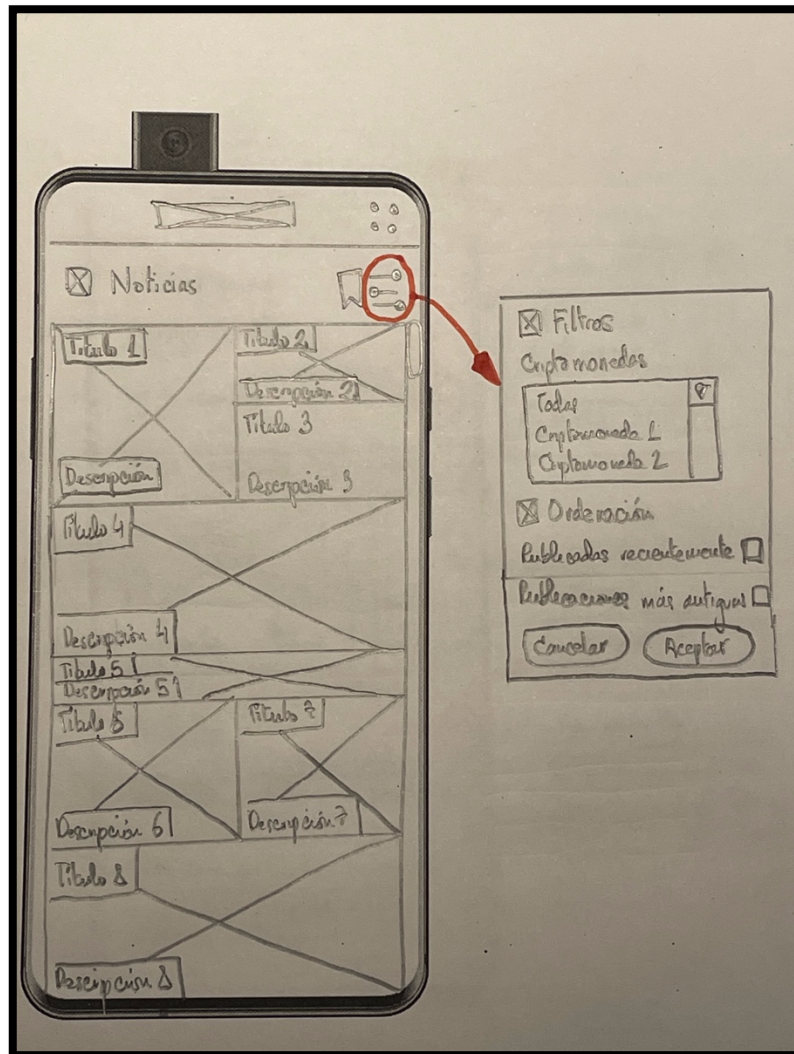 Noticias
Título 1
Descripción
Título 2
Descripción 2
Título 3
Descripción 3
Título 4
Descripción 4
Título 5
Descripción 5
Título 6
Descripción 6
Título 7
Descripción 7
Título 8
Descripción 8
Filtros
Criptomonedas
Todas
Criptomoneda 1
Criptomoneda 2
Ordenación
Publicadas recientemente
Publicaciones más antiguas
Cancelar
Aceptar